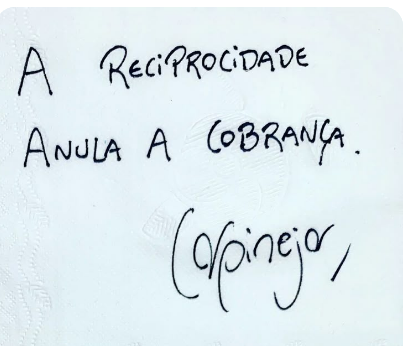 A RECIPROCIDADE
ANULA A COBRANÇA.
Carpinejar,